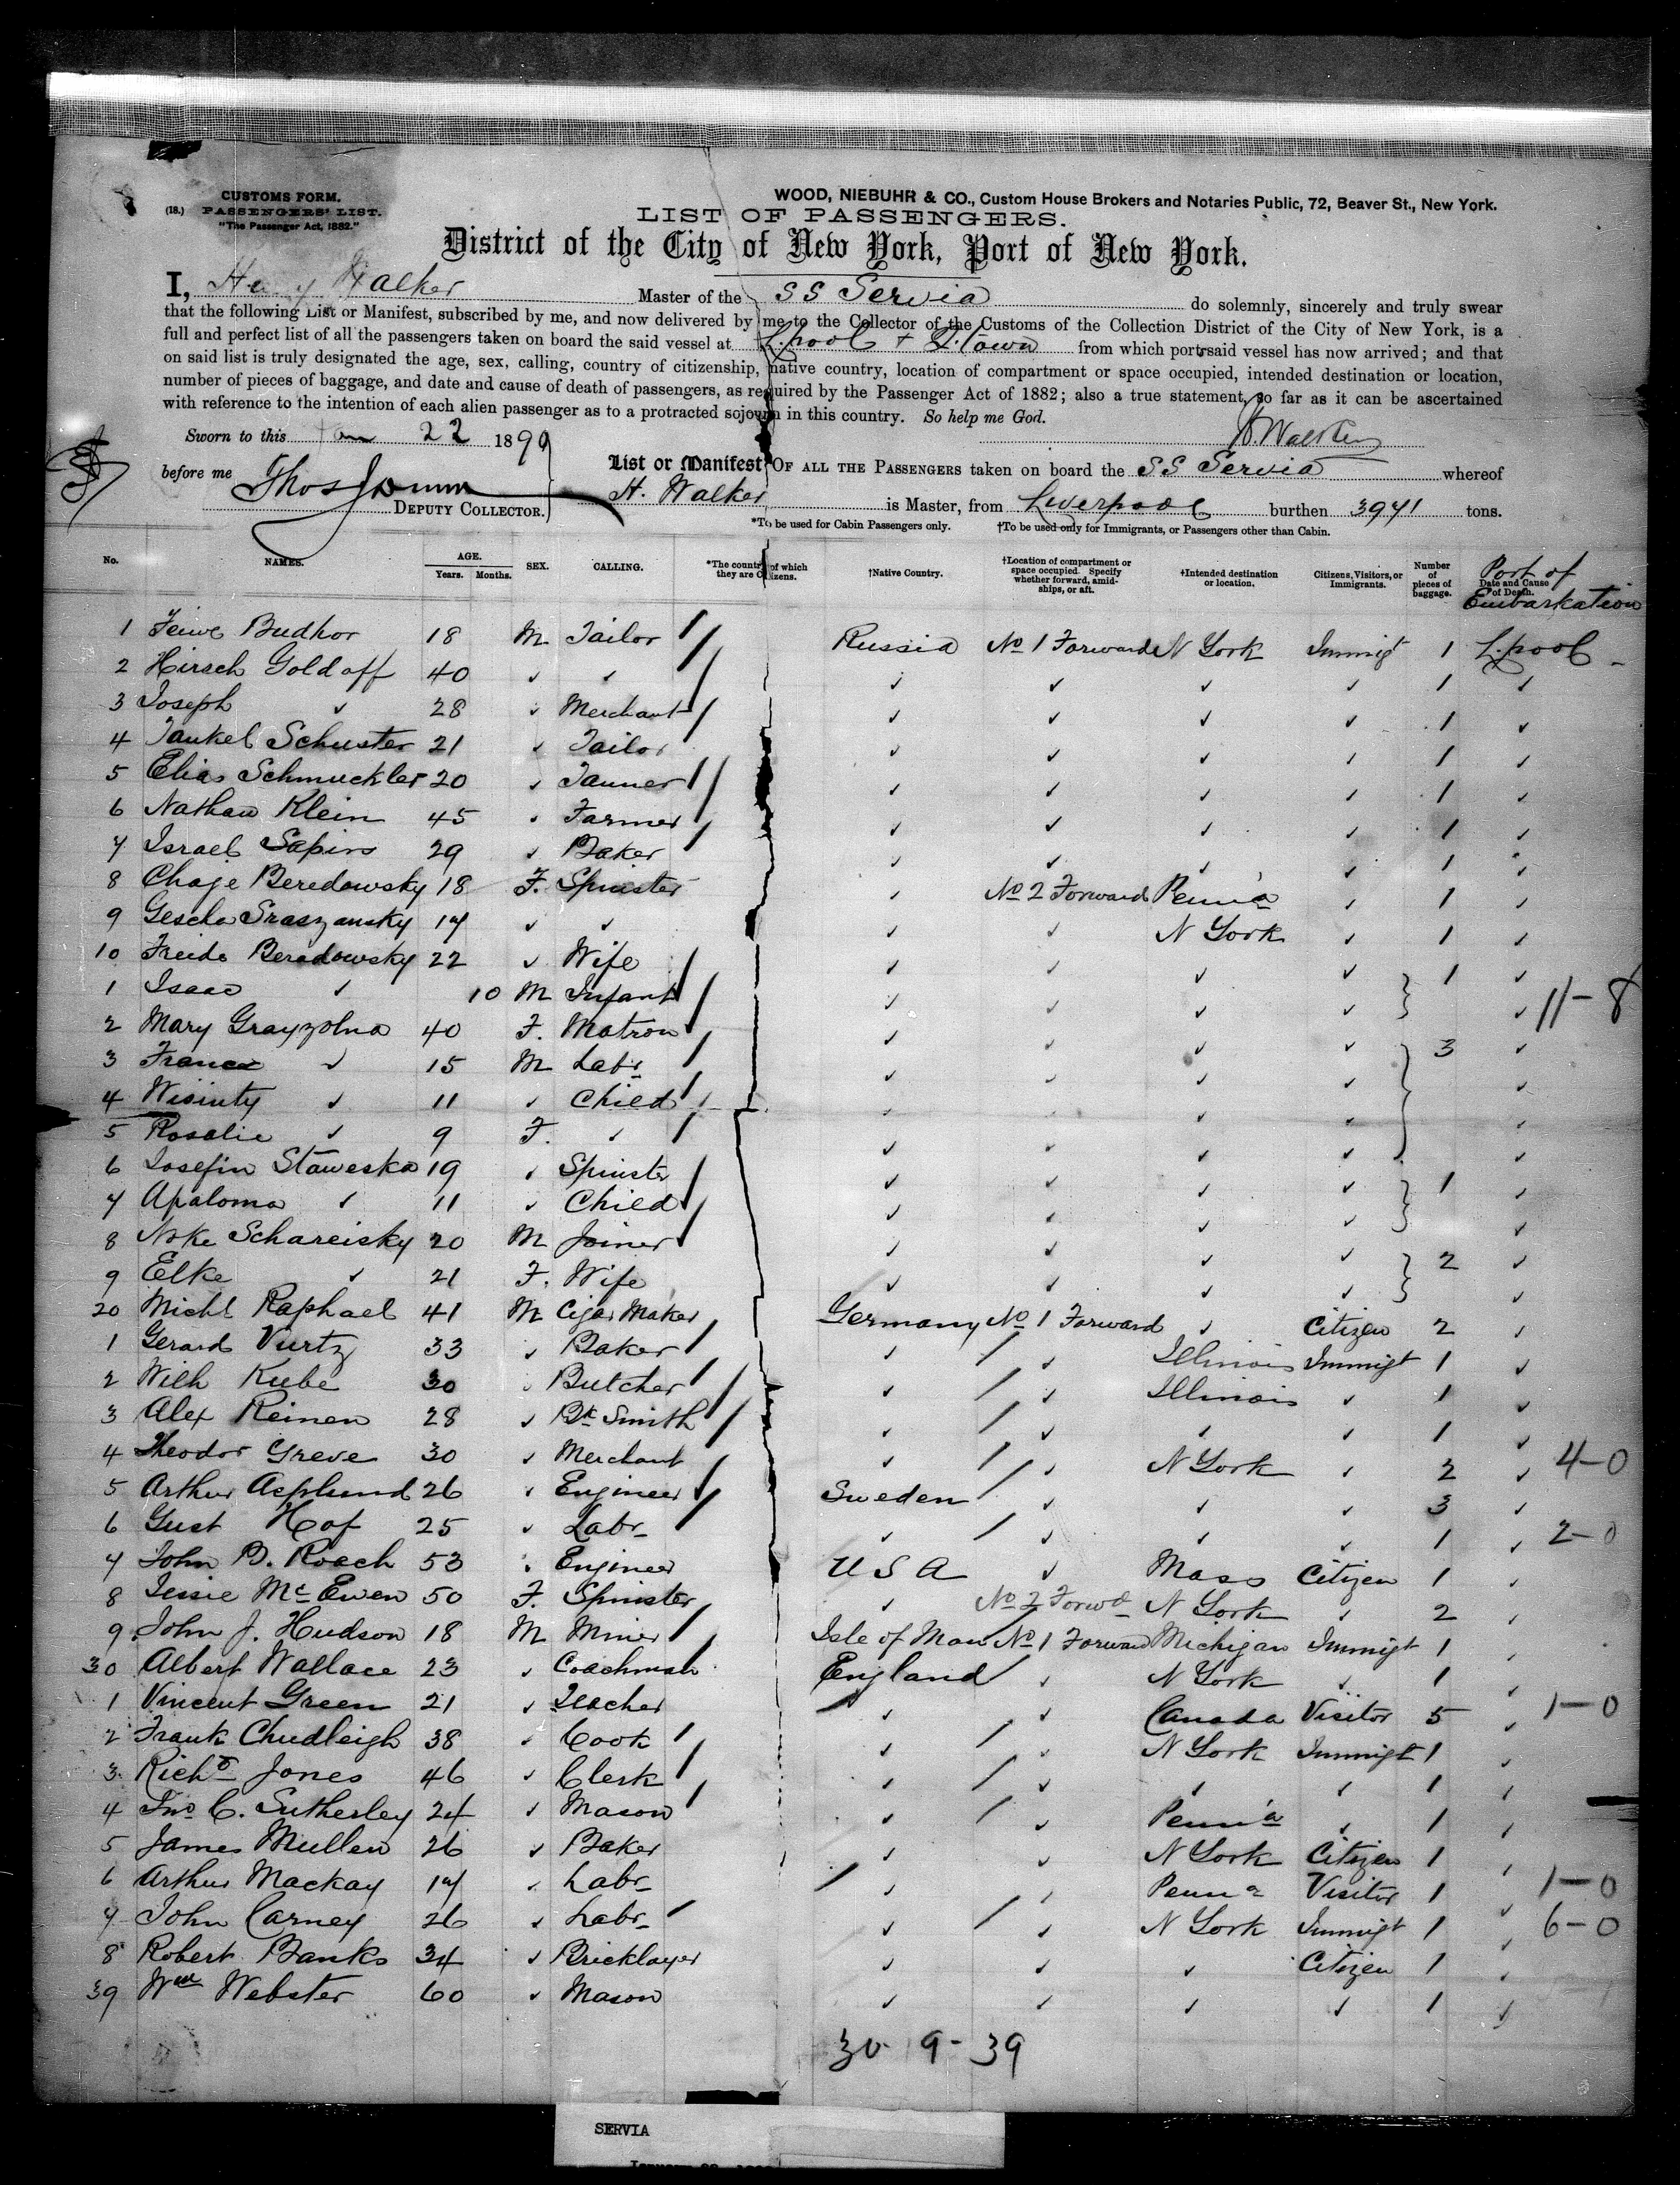 CUSTOMS FORM.
(18.) PASSENGERS' LIST.
"The Passenger Act, 1882."
WOOD, NIEBUHR & CO., Custom House Brokers and Notaries Public, 72, Beaver St., New York.
LIST OF PASSENGERS.
District of the City of New York, Port of New York.
I, Henry Walker Master of the SS Servia do solemnly, sincerely and truly swear
that the following List or Manifest, subscribed by me, and now delivered by me to the Collector of the Customs of the Collection District of the City of New York, is a
full and perfect list of all the passengers taken on board the said vessel at L.pool + Q.Town from which port said vessel has now arrived; and that
on said list is truly designated the age, sex, calling, country of citizenship, native country, location of compartment or space occupied, intended destination or location,
number of pieces of baggage, and date and cause of death of passengers, as required by the Passenger Act of 1882; also a true statement, so far as it can be ascertained
with reference to the intention of each alien passenger as to a protracted sojourn in this country. So help me God.
Sworn to this Jan 22 1890 H. Walker
before me Thos
DEPUTY COLLECTOR.
List or Manifest OF ALL THE PASSENGERS taken on board the SS Servia whereof
H. Walker is Master, from Liverpool burthen 3941 tons.
*To be used for Cabin Passengers only. †To be used only for Immigrants, or Passengers other than Cabin.
No. NAMES. AGE. Years. Months. SEX. CALLING. *The country of which they are Citizens. †Native Country. †Location of compartment or space occupied. Specify whether forward, amidships, or aft. †Intended destination or location. Citizens, Visitors, or Immigrants. Number of pieces of baggage. Date and Cause of Death. Port of Embarkation
1 Budhor 18 M Tailor Russia No 1 Forward N York Immigt 1 L.pool
2 Hirsch Goldoff 40 ✓ ✓ ✓ ✓ ✓ ✓ 1 ✓
3 Joseph ✓ 28 ✓ Merchant ✓ ✓ ✓ ✓ 1 ✓
4 Jankel Schuster 21 ✓ Tailor ✓ ✓ ✓ ✓ 1 ✓
5 Elias Schmuckler 20 ✓ Tanner ✓ ✓ ✓ ✓ 1 ✓
6 Nathan Klein 45 ✓ Farmer ✓ ✓ ✓ ✓ 1 ✓
7 Israel Sapiro 29 ✓ Baker ✓ ✓ ✓ ✓ 1 ✓
8 Chaje Beredowsky 18 F. Spinster ✓ No 2 Forward Penn'a ✓ 1 ✓
9 Gescha Sraszansky 17 ✓ ✓ ✓ ✓ N York ✓ 1 ✓
10 Freide Beredowsky 22 ✓ Wife ✓ ✓ ✓ ✓ 1 ✓
1 Isaac ✓ 10 M Infant ✓ ✓ ✓ ✓ ✓ 11-8
2 Mary Grayzolna 40 F. Matron ✓ ✓ ✓ ✓ 3 ✓
3 Franca ✓ 15 M Labr ✓ ✓ ✓ ✓ ✓
4 Wisinty ✓ 11 ✓ Child ✓ ✓ ✓ ✓ ✓
5 Rosalie ✓ 9 F. ✓ ✓ ✓ ✓ ✓ ✓
6 Josefin Staweska 19 ✓ Spinster ✓ ✓ ✓ ✓ 1 ✓
7 Apaloma ✓ 11 ✓ Child ✓ ✓ ✓ ✓ ✓
8 Noke Schareisky 20 M Joiner ✓ ✓ ✓ ✓ 2 ✓
9 Elke ✓ 21 F. Wife ✓ ✓ ✓ ✓ ✓
20 Michl Raphael 41 M Cigar Maker Germany No 1 Forward ✓ Citizen 2 ✓
1 Gerard Vurtz 33 ✓ Baker ✓ ✓ Illinois Immigt 1 ✓
2 Wilh Kube 30 ✓ Butcher ✓ ✓ Illinois ✓ 1 ✓
3 Alex Reinen 28 ✓ Bk Smith ✓ ✓ ✓ ✓ 1 ✓
4 Theodor Greve 30 ✓ Merchant ✓ ✓ N York ✓ 2 ✓ 4-0
5 Arthur Asplund 26 ✓ Engineer Sweden ✓ ✓ ✓ 3 ✓
6 Gust Hof 25 ✓ Labr ✓ ✓ ✓ ✓ 1 ✓ 2-0
7 John B. Roach 53 ✓ Engineer U S A ✓ Mass Citizen 1 ✓
8 Jessie McEwen 50 F. Spinster ✓ No 2 Forwd N York ✓ 2 ✓
9 John J. Hudson 18 M Miner Isle of Man No 1 Forward Michigan Immigt 1 ✓
30 Albert Wallace 23 ✓ Coachman England ✓ N York ✓ 1 ✓
1 Vincent Green 21 ✓ Teacher ✓ ✓ Canada Visitor 5 ✓ 1-0
2 Frank Chudleigh 38 ✓ Cook ✓ ✓ N York Immigt 1 ✓
3 Richd Jones 46 ✓ Clerk ✓ ✓ ✓ ✓ 1 ✓
4 Jno C. Sutherley 24 ✓ Mason ✓ ✓ Penn'a ✓ 1 ✓
5 James Mullen 26 ✓ Baker ✓ ✓ N York Citizen 1 ✓
6 Arthur Mackay 17 ✓ Labr ✓ ✓ Penna Visitor 1 ✓ 1-0
7 John Carney 26 ✓ Labr ✓ ✓ N York Immigt 1 ✓ 6-0
8 Robert Banks 34 ✓ Bricklayer ✓ ✓ ✓ Citizen 1 ✓
39 Wm Webster 60 ✓ Mason ✓ ✓ ✓ ✓ 1 ✓
30 - 9 - 39
SERVIA